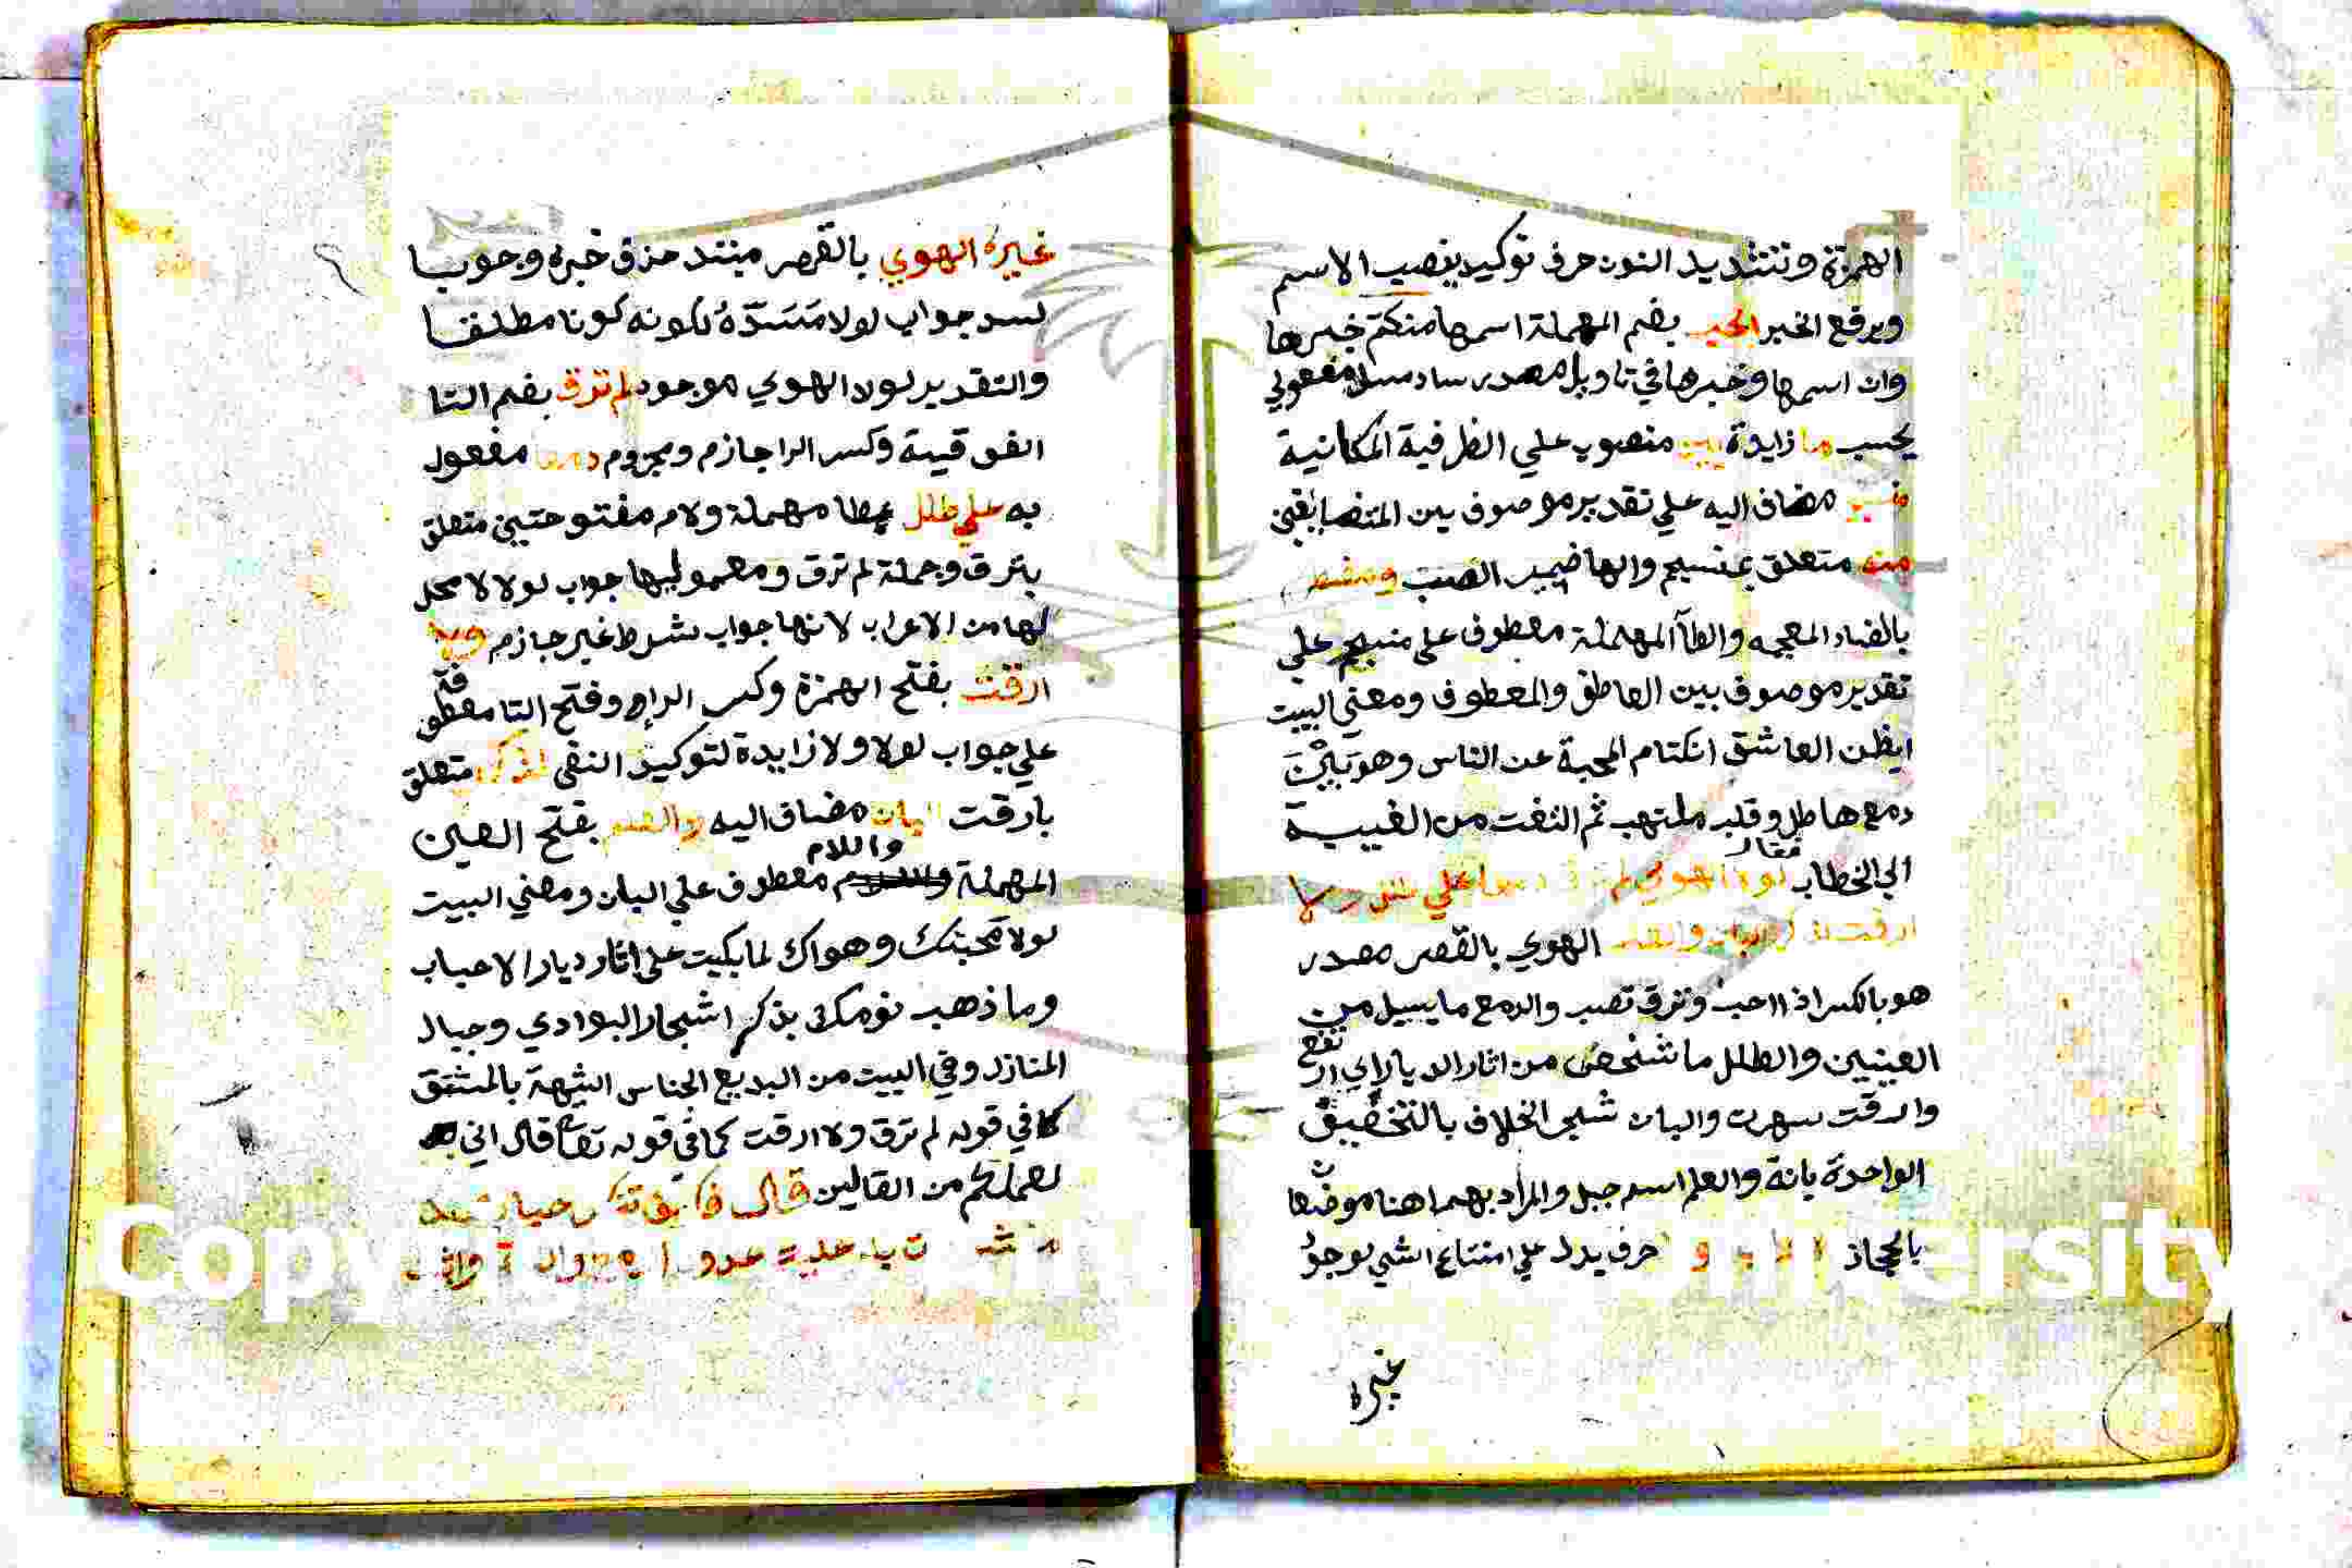 الهمزة وتشديد النون حرف توكيد ينصب الاسم
ويرفع الخبر الحب بضم المهملة اسمها منكتم خبرها
وان اسمها وخبرها في تاويل مصدر ساد مسد مفعولي
يحسب ما زايدة بين منصوب علي الظرفية المكانية
منسجم مضاف اليه علي تقدير موصوف بين المتضايفين
منه متعلق بمنسجم والها ضمير الصب ومضطرم
بالضاد المعجمه والطآ المهملة معطوف على منسجم علي
تقدير موصوف بين العاطف والمعطوف ومعني البيت
ايظن العاشق انكتام المحبة عن الناس وهو بين
دمع هاطل وقلب ملتهب ثم التفت من الغيبة
الي الخطاب فقال لولا الهوي لم ترق دمعا علي طلل ولا
ارقت لذكر البان والعلم الهوي بالقصر مصدر
هو بالكسر اذا احب وترق تصب والدمع ما يسيل من
العينين والطلل ما شخص من اثار الديار اي ارتفع
وارقت سهرت والبان شجر الخلاف بالتخفيف
الواحدة بانة والعلم اسم جبل والمراد بهما هنا موضعان
بالحجاز حرف يدل علي امتناع الشي لوجود
غيره
غيره الهوي بالقصر مبتدا حذف خبره وجوبا
لسد جواب لولا مَسَدّهُ لكونه كونا مطلقا
والتقدير لولا الهوي موجود لم ترق بضم التا
الفوقية وكسر الرا جازم ومجزوم دمعا مفعول
به علي طلل بطا مهملة ولام مفتوحتين متعلق
بترق وجملة لم ترق ومعموليها جواب لولا لا محل
لها من الاعراب لانها جواب شرط غير جازم ولا
ارقت بفتح الهمزة وكسر الراء وفتح التا معطوفة
علي جواب لولا ولا زايدة لتوكيد النفي لذكر متعلق
بارقت البان مضاف اليه والعلم بفتح العين
المهملة واللام معطوف علي البان ومعني البيت
لولا محبتك وهواك لما بكيت على اثار ديار الاحباب
وما ذهب نومك بذكر اشجار البوادي وجبال
المنازل وفي البيت من البديع الجناس الشبهة بالمشتق
كما في قوله لم ترق ولا ارقت كما في قوله تعا قال اني
لعملكم من القالين قال فكيف تنكر حبا بعد
ما شهدت به عليك عدول الدمع والسقم واثبت
Copyright University